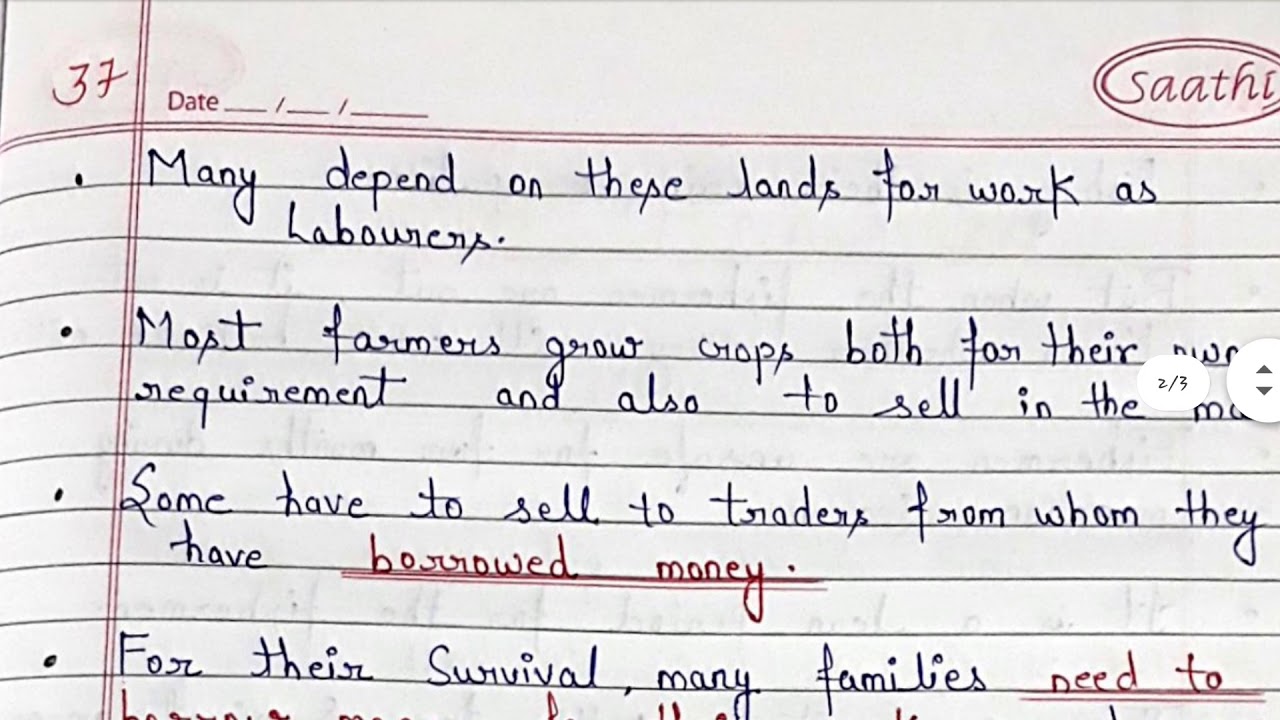 37
Date __/__/____
Saathi
• Many depend on these lands for work as
Labourers.
• Most farmers grow crops both for their own
requirement and also to sell in the
2/3
• Some have to sell to traders from whom they
have borrowed money.
• For their Survival, many families need to